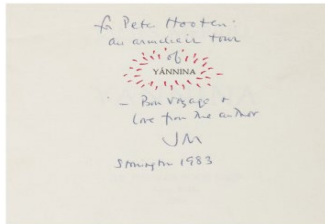 for Peter Hooten:
an armchair tour
of
YÁNNINA
– Bon Voyage +
Love from the author
JM
Stonington 1983